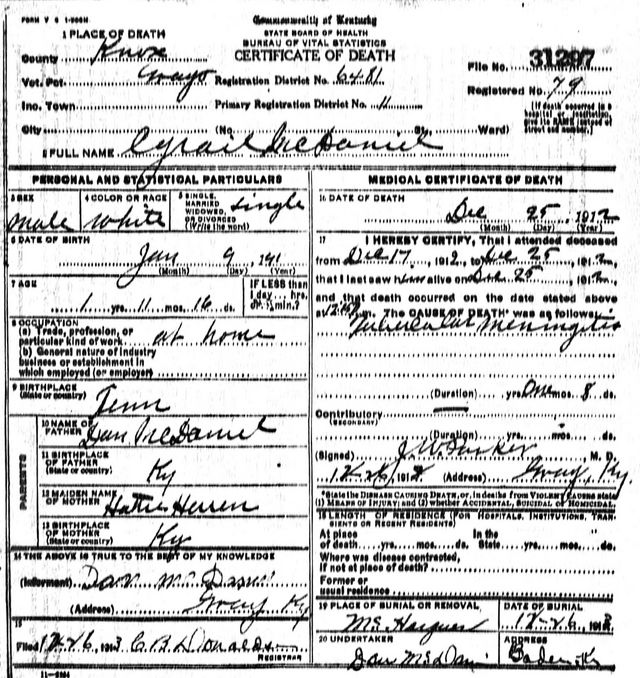 FORM V S 1-200M
Commonwealth of Kentucky
STATE BOARD OF HEALTH
BUREAU OF VITAL STATISTICS
CERTIFICATE OF DEATH
1 PLACE OF DEATH
County Knox
Vot. Pct. Grays Registration District No. 6481
Inc. Town Primary Registration District No. 11
City (No. St. Ward)
File No. 31297
Registered No. 79
(If death occurred in a hospital or institution, give its NAME instead of street and number.)
2 FULL NAME Cyrail McDaniel
PERSONAL AND STATISTICAL PARTICULARS
3 SEX
male
4 COLOR OR RACE
white
5 SINGLE, MARRIED WIDOWED, OR DIVORCED (Write the word)
single
6 DATE OF BIRTH
Jan 9, 191
(Month) (Day) (Year)
7 AGE
1 yrs. 11 mos. 16 ds.
IF LESS than 1 day... hrs. or... min.?
8 OCCUPATION
(a) Trade, profession, or particular kind of work at home
(b) General nature of industry business or establishment in which employed (or employer)
9 BIRTHPLACE
(State or country)
Tenn
PARENTS
10 NAME OF FATHER
Dan McDaniel
11 BIRTHPLACE OF FATHER
(State or country)
Ky
12 MAIDEN NAME OF MOTHER
Hattie Herren
13 BIRTHPLACE OF MOTHER
(State or country)
Ky
14 THE ABOVE IS TRUE TO THE BEST OF MY KNOWLEDGE
(Informant) Dan
(Address) Gray Ky
15
Filed 12-26, 1913 C B Donaldson
REGISTRAR
11-5184
MEDICAL CERTIFICATE OF DEATH
16 DATE OF DEATH
Dec 25, 1912
(Month) (Day) (Year)
17 I HEREBY CERTIFY, That I attended deceased
from Dec 17, 1912, to Dec 25, 191
that I last saw him alive on Dec 25, 191
and that death occurred on the date stated above
at m. The CAUSE OF DEATH was as follows:
Tubercular Meningitis
(Duration) yrs. One mos. 8 ds.
Contributory
(SECONDARY)
(Duration) yrs. mos. ds.
(Signed) J. W. Parker, M. D.
12-26, 191 (Address) Gray, Ky.
*State the DISEASE CAUSING DEATH, or, in deaths from VIOLENT CAUSES state (1) MEANS OF INJURY; and (2) whether ACCIDENTAL, SUICIDAL or HOMICIDAL.
18 LENGTH OF RESIDENCE (FOR HOSPITALS, INSTITUTIONS, TRANSIENTS OR RECENT RESIDENTS)
At place of death yrs. mos. ds. In the State yrs. mos. ds.
Where was disease contracted, if not at place of death?
Former or usual residence
19 PLACE OF BURIAL OR REMOVAL
DATE OF BURIAL
12-26, 191
20 UNDERTAKER
Dan
ADDRESS